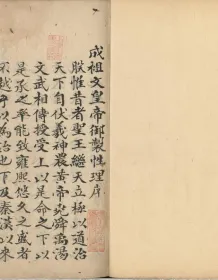 成祖文皇帝御製性理序
朕惟昔者聖王繼天立極以道治
天下自伏羲神農黃帝堯舜禹湯
文武相傳授受上以是命之下以
是承之率能致雍熙悠久之盛者
不越乎以為治也下及秦漢以來